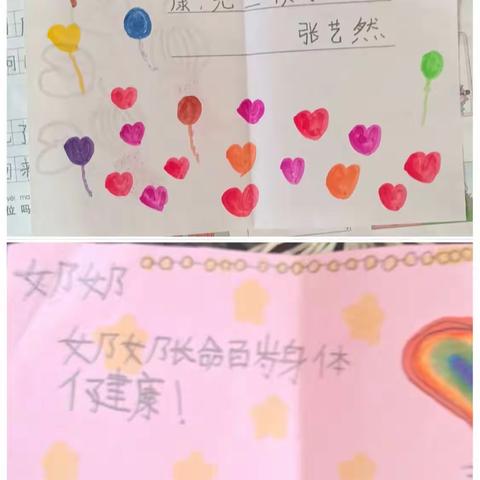 康,
张艺然
了
来
位吗
奶奶
奶奶长命百岁身体
健康!